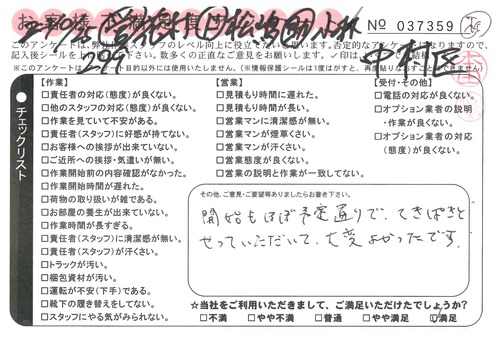 No 037359
このアンケートは、弊社
299
中村区
記入後シールを上
※このアンケートは
目的以外には使用いたしません。(※情報保護シールは1度はがすと、再度
チェックリスト
【作業】
□責任者の対応(態度)が良くない。
□他のスタッフの対応(態度)が良くない。
□作業を見ていて不安がある。
□責任者(スタッフ)に好感が持てない。
□お客様への挨拶が出来ていない。
□ご近所への挨拶・気遣いが無い。
□作業開始前の内容確認がなかった。
□作業開始時間が遅れた。
□荷物の取り扱いが雑である。
□お部屋の養生が出来ていない。
□作業時間が長すぎる。
□責任者(スタッフ)に清潔感が無い。
□責任者(スタッフ)が汗くさい。
□トラックが汚い。
□梱包資材が汚い。
□運転が不安(下手)である。
□靴下の履き替えをしてない。
□スタッフにやる気がみられない。
【営業】
□見積もり時間に遅れた。
□見積もり時間が長い。
□営業マンに清潔感が無い。
□営業マンが煙草くさい。
□営業マンが汗くさい。
□営業態度が良くない。
□営業の説明と作業が一致してない。
【受付・その他】
□電話の対応が良くない。
□オプション業者の説明
・作業が良くない。
□オプション業者の対応
(態度)が良くない。
その他、ご意見・ご要望等ありましたらお書き下さい。
開始もほぼ予定通りで、てきぱきと
せっていただいて、大変よかったです。
☆当社をご利用いただきまして、ご満足いただけたでしょうか?
□不満 □やや不満 □普通 □やや満足 □満足